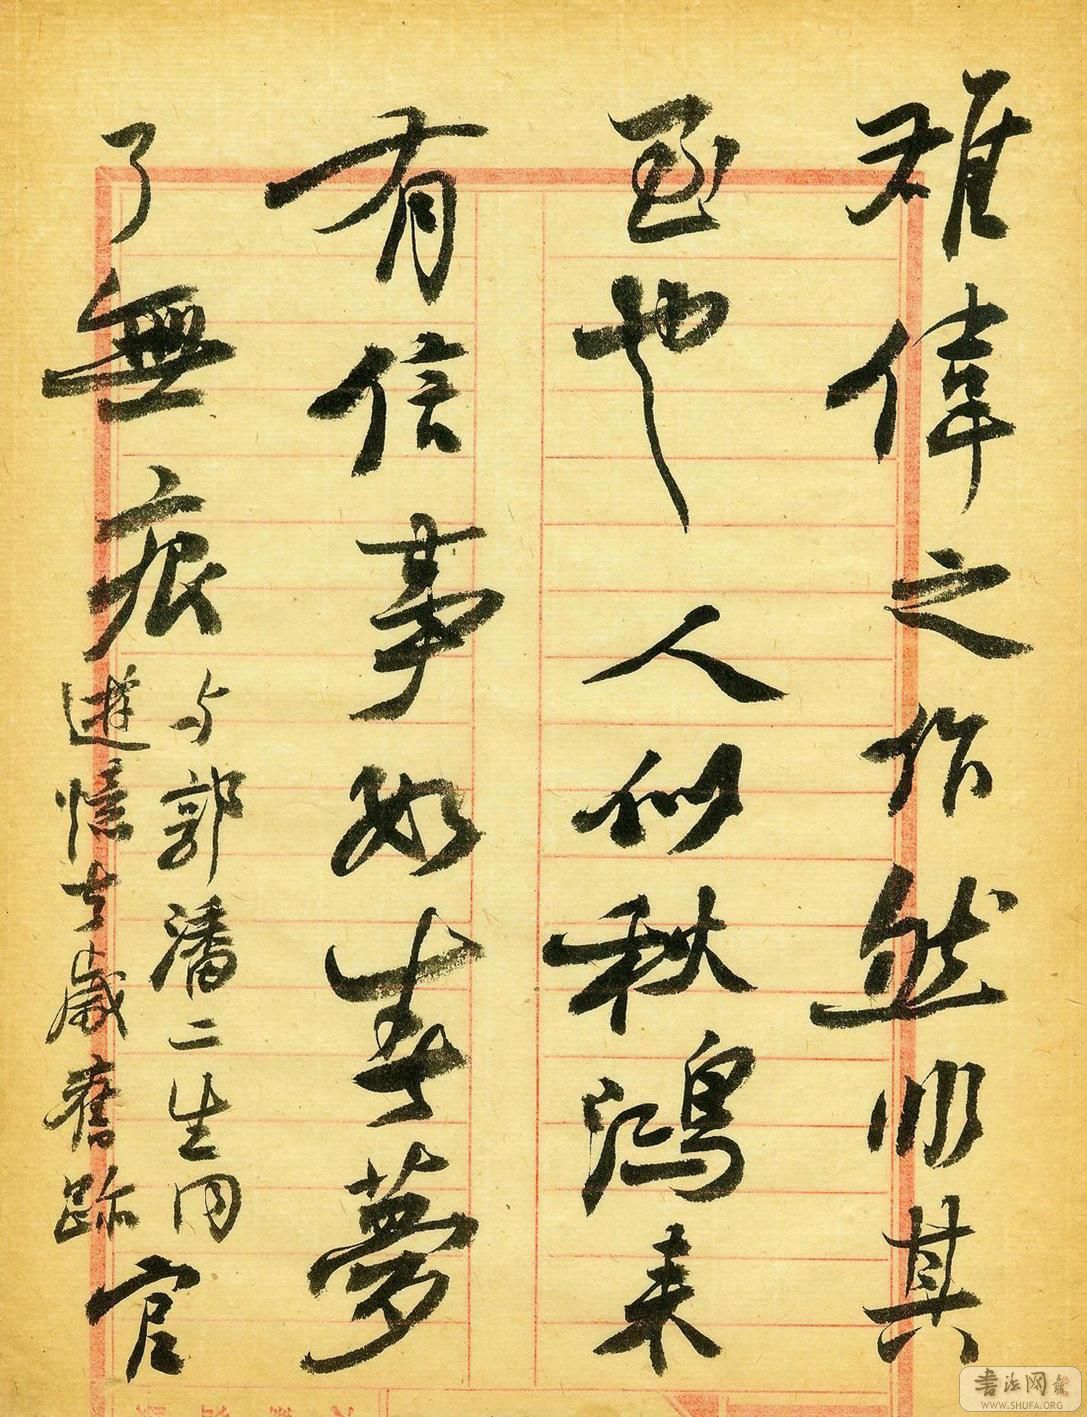 雄偉之作然非其
至也人似秋鴻来
有信事如春夢
了無痕
与郭潘二生同
遊憶去歳舊跡
官
书法网
WWW.SHUFA.ORG